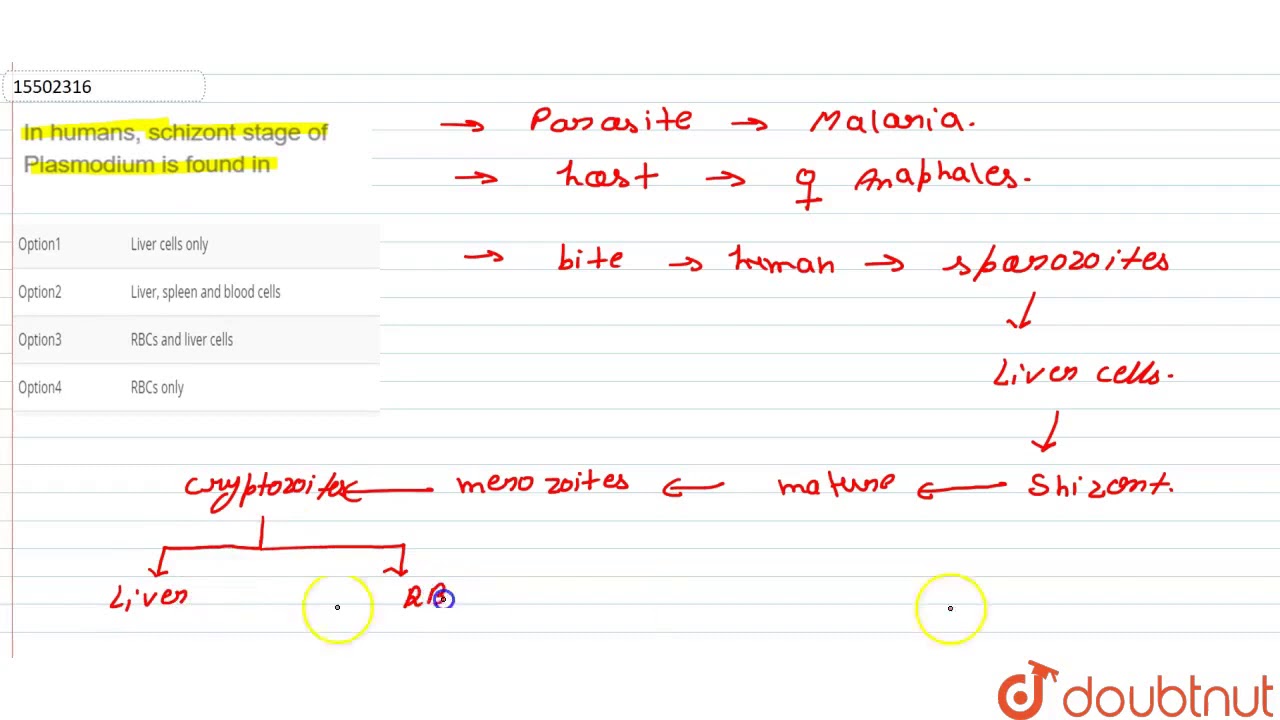 15502316
In humans, schizont stage of
Plasmodium is found in
Option1 Liver cells only
Option2 Liver, spleen and blood cells
Option3 RBCs and liver cells
Option4 RBCs only
→ Parasite → Malaria.
→ host → ♀ Anaphales.
→ bite → human → sporozoites
↓
Liver cells.
↓
cryptozoites ← merozoites ← mature ← Shizont.
Liver RB
doubtnut